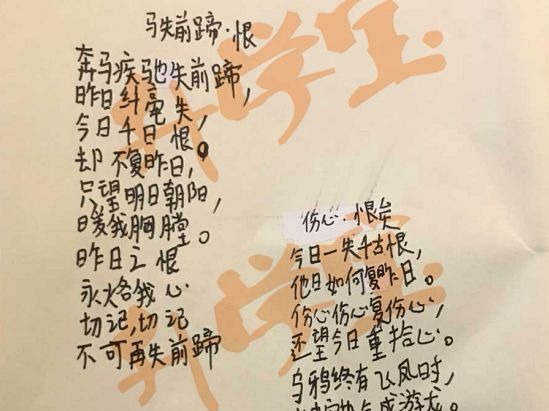 马失前蹄·恨
奔马疾驰失前蹄
昨日纤毫失,
今日千日恨,
却不复昨日。
只望明日朝阳,
暖我胸膛。
昨日之恨
永烙我心
切记,切记
不可再失前蹄
伤心·恨矣
今日一失千古恨,
他日如何复昨日。
伤心伤心复伤心,
还望今日重拾心。
乌鸦终有飞凤时,
成游龙。
升学宝
升学宝